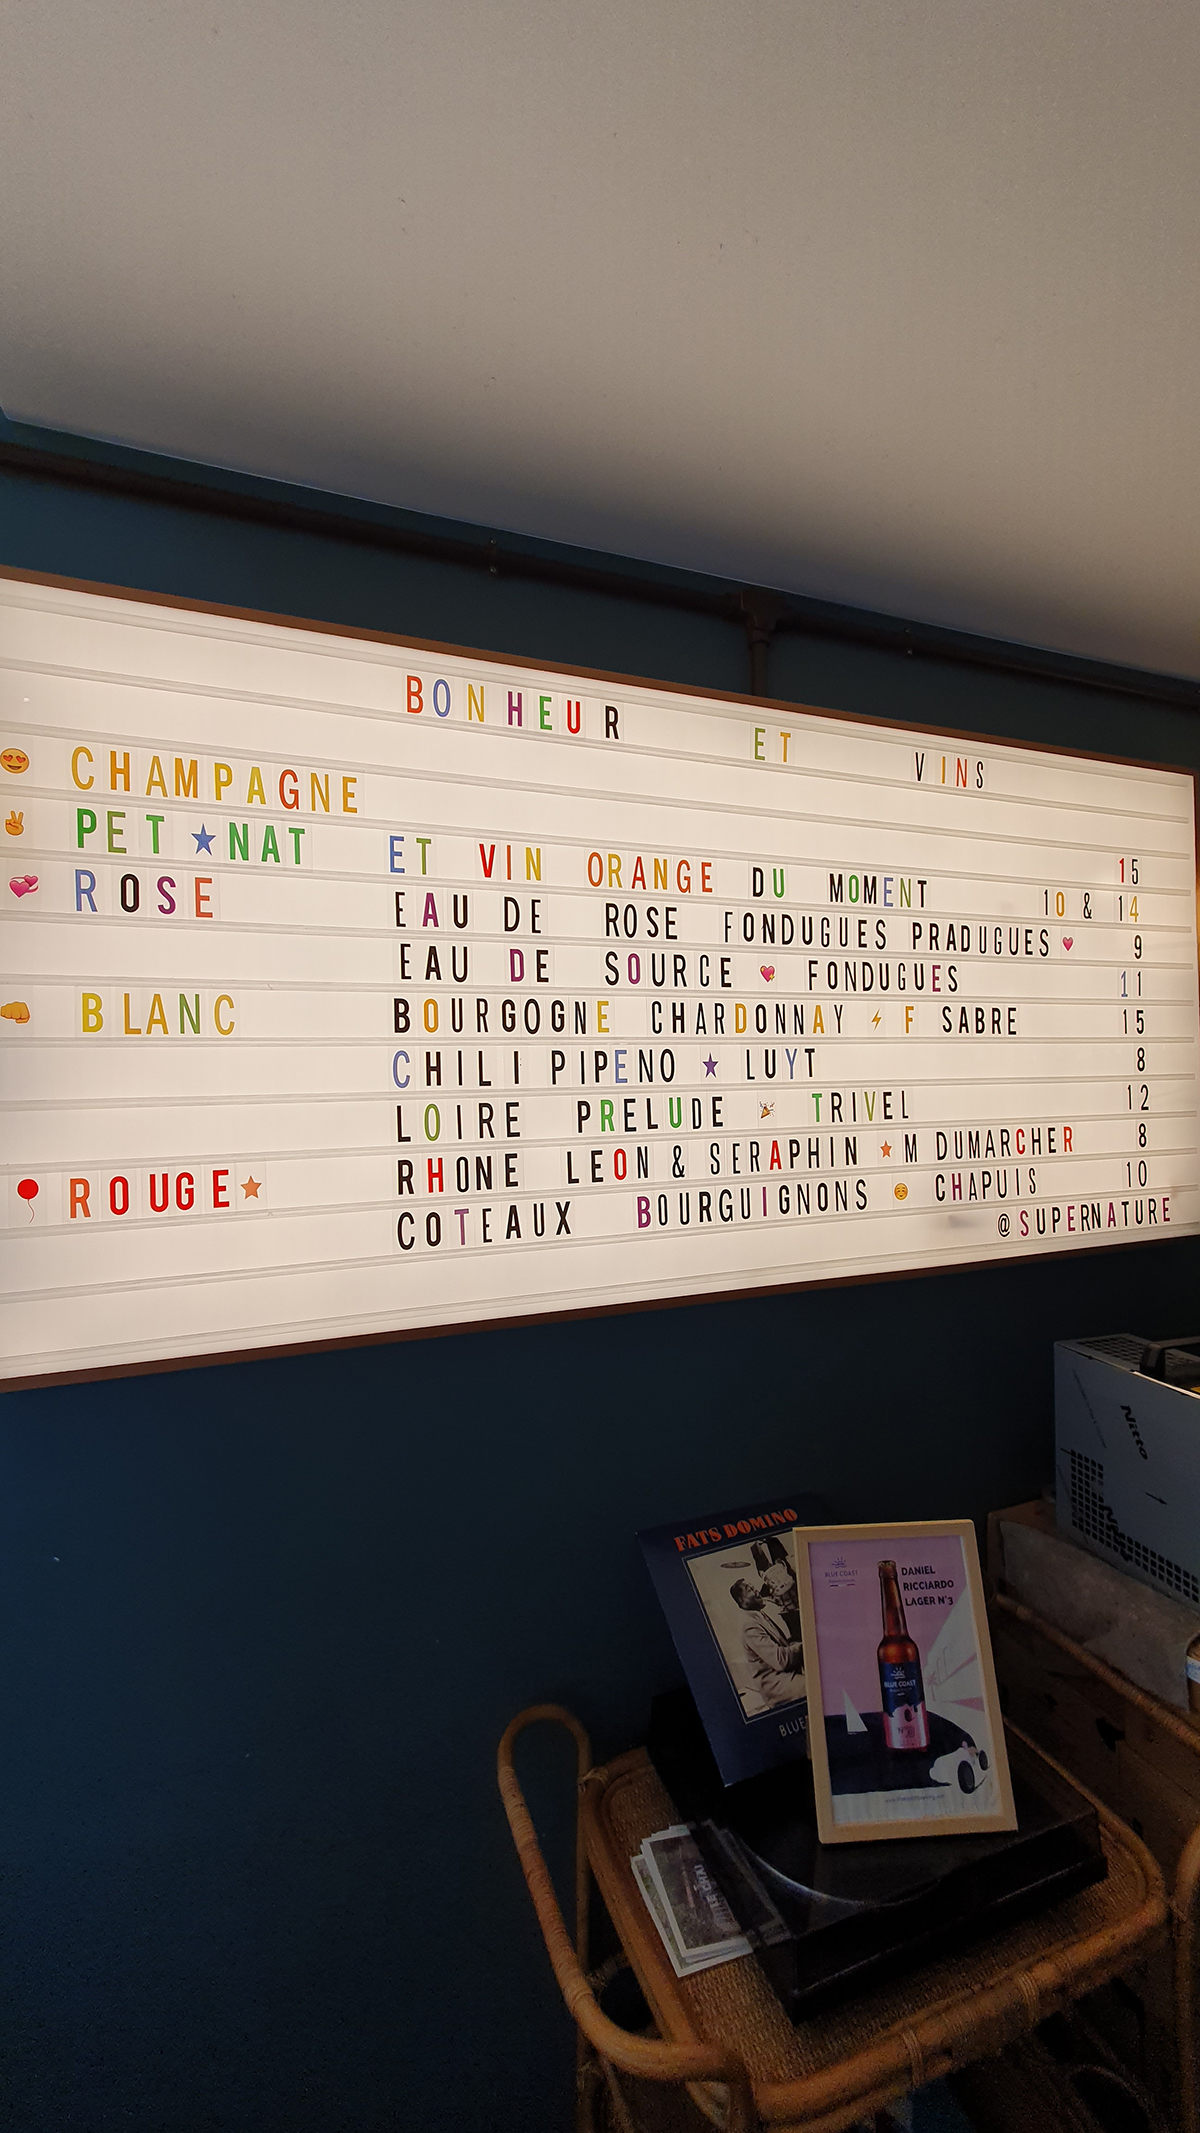 BONHEUR ET VINS
CHAMPAGNE 15
PET NAT ET VIN ORANGE DU MOMENT 10 & 14
ROSE EAU DE ROSE FONDUGUES PRADUGUES 9
EAU DE SOURCE FONDUGUES 11
BLANC BOURGOGNE CHARDONNAY F SABRE 15
CHILI PIPENO LUYT 8
LOIRE PRELUDE TRIVEL 12
ROUGE RHONE LEON & SERAPHIN M DUMARCHER 8
COTEAUX BOURGUIGNONS CHAPUIS 10
@SUPERNATURE
Nitto
FATS DOMINO
BLUE COAST
DANIEL
RICCIARDO
LAGER N°3
BLUE COAST